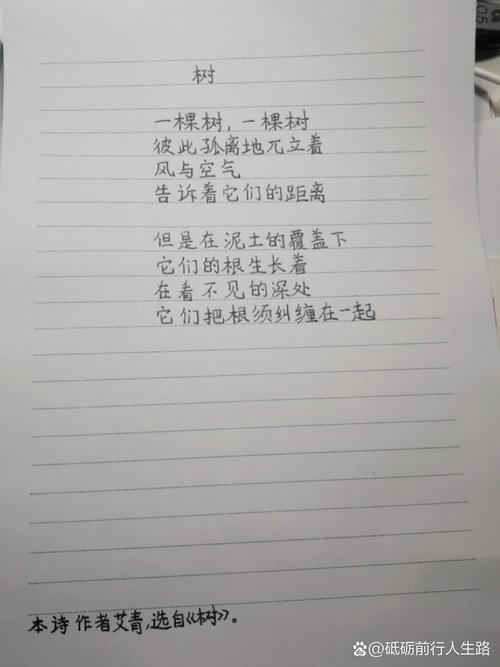 树
一棵树，一棵树
彼此孤离地兀立着
风与空气
告诉着它们的距离
但是在泥土的覆盖下
它们的根生长着
在看不见的深处
它们把根须纠缠在一起
本诗作者艾青，选自《树》。
@砥砺前行人生路